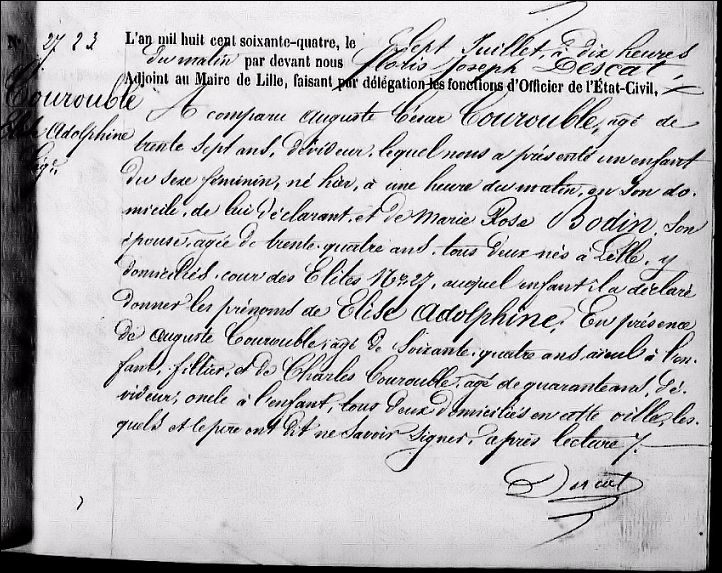 2723
Courouble
Elise Adolphine
Lég.e
L'an mil huit cent soixante-quatre, le Sept Juillet, à dix heures
du matin par devant nous Floris Joseph Descat,
Adjoint au Maire de Lille, faisant par délégation les fonctions d'Officier de l'État-Civil,
A comparu Auguste César Courouble, agé de
trente sept ans, dévideur, lequel nous a présenté un enfant
du sexe féminin, né hier, à une heure du matin, en son do-
micile, de lui déclarant, et de Marie Rose Bodin, son
épouse, agée de trente-quatre ans, tous deux nés à Lille, y
domiciliés, cour des Elites N.º 27, auquel enfant il a déclaré
donner les prénoms de Elise Adolphine. En présence
de Auguste Courouble, agé de soixante-quatre ans, aieul à l'en-
fant, filtier, et de Charles Courouble, agé de quarante ans, dé-
videur, oncle à l'enfant, tous deux domiciliés en cette ville, les-
quels et le père ont dit ne savoir signer, après lecture.
Descat